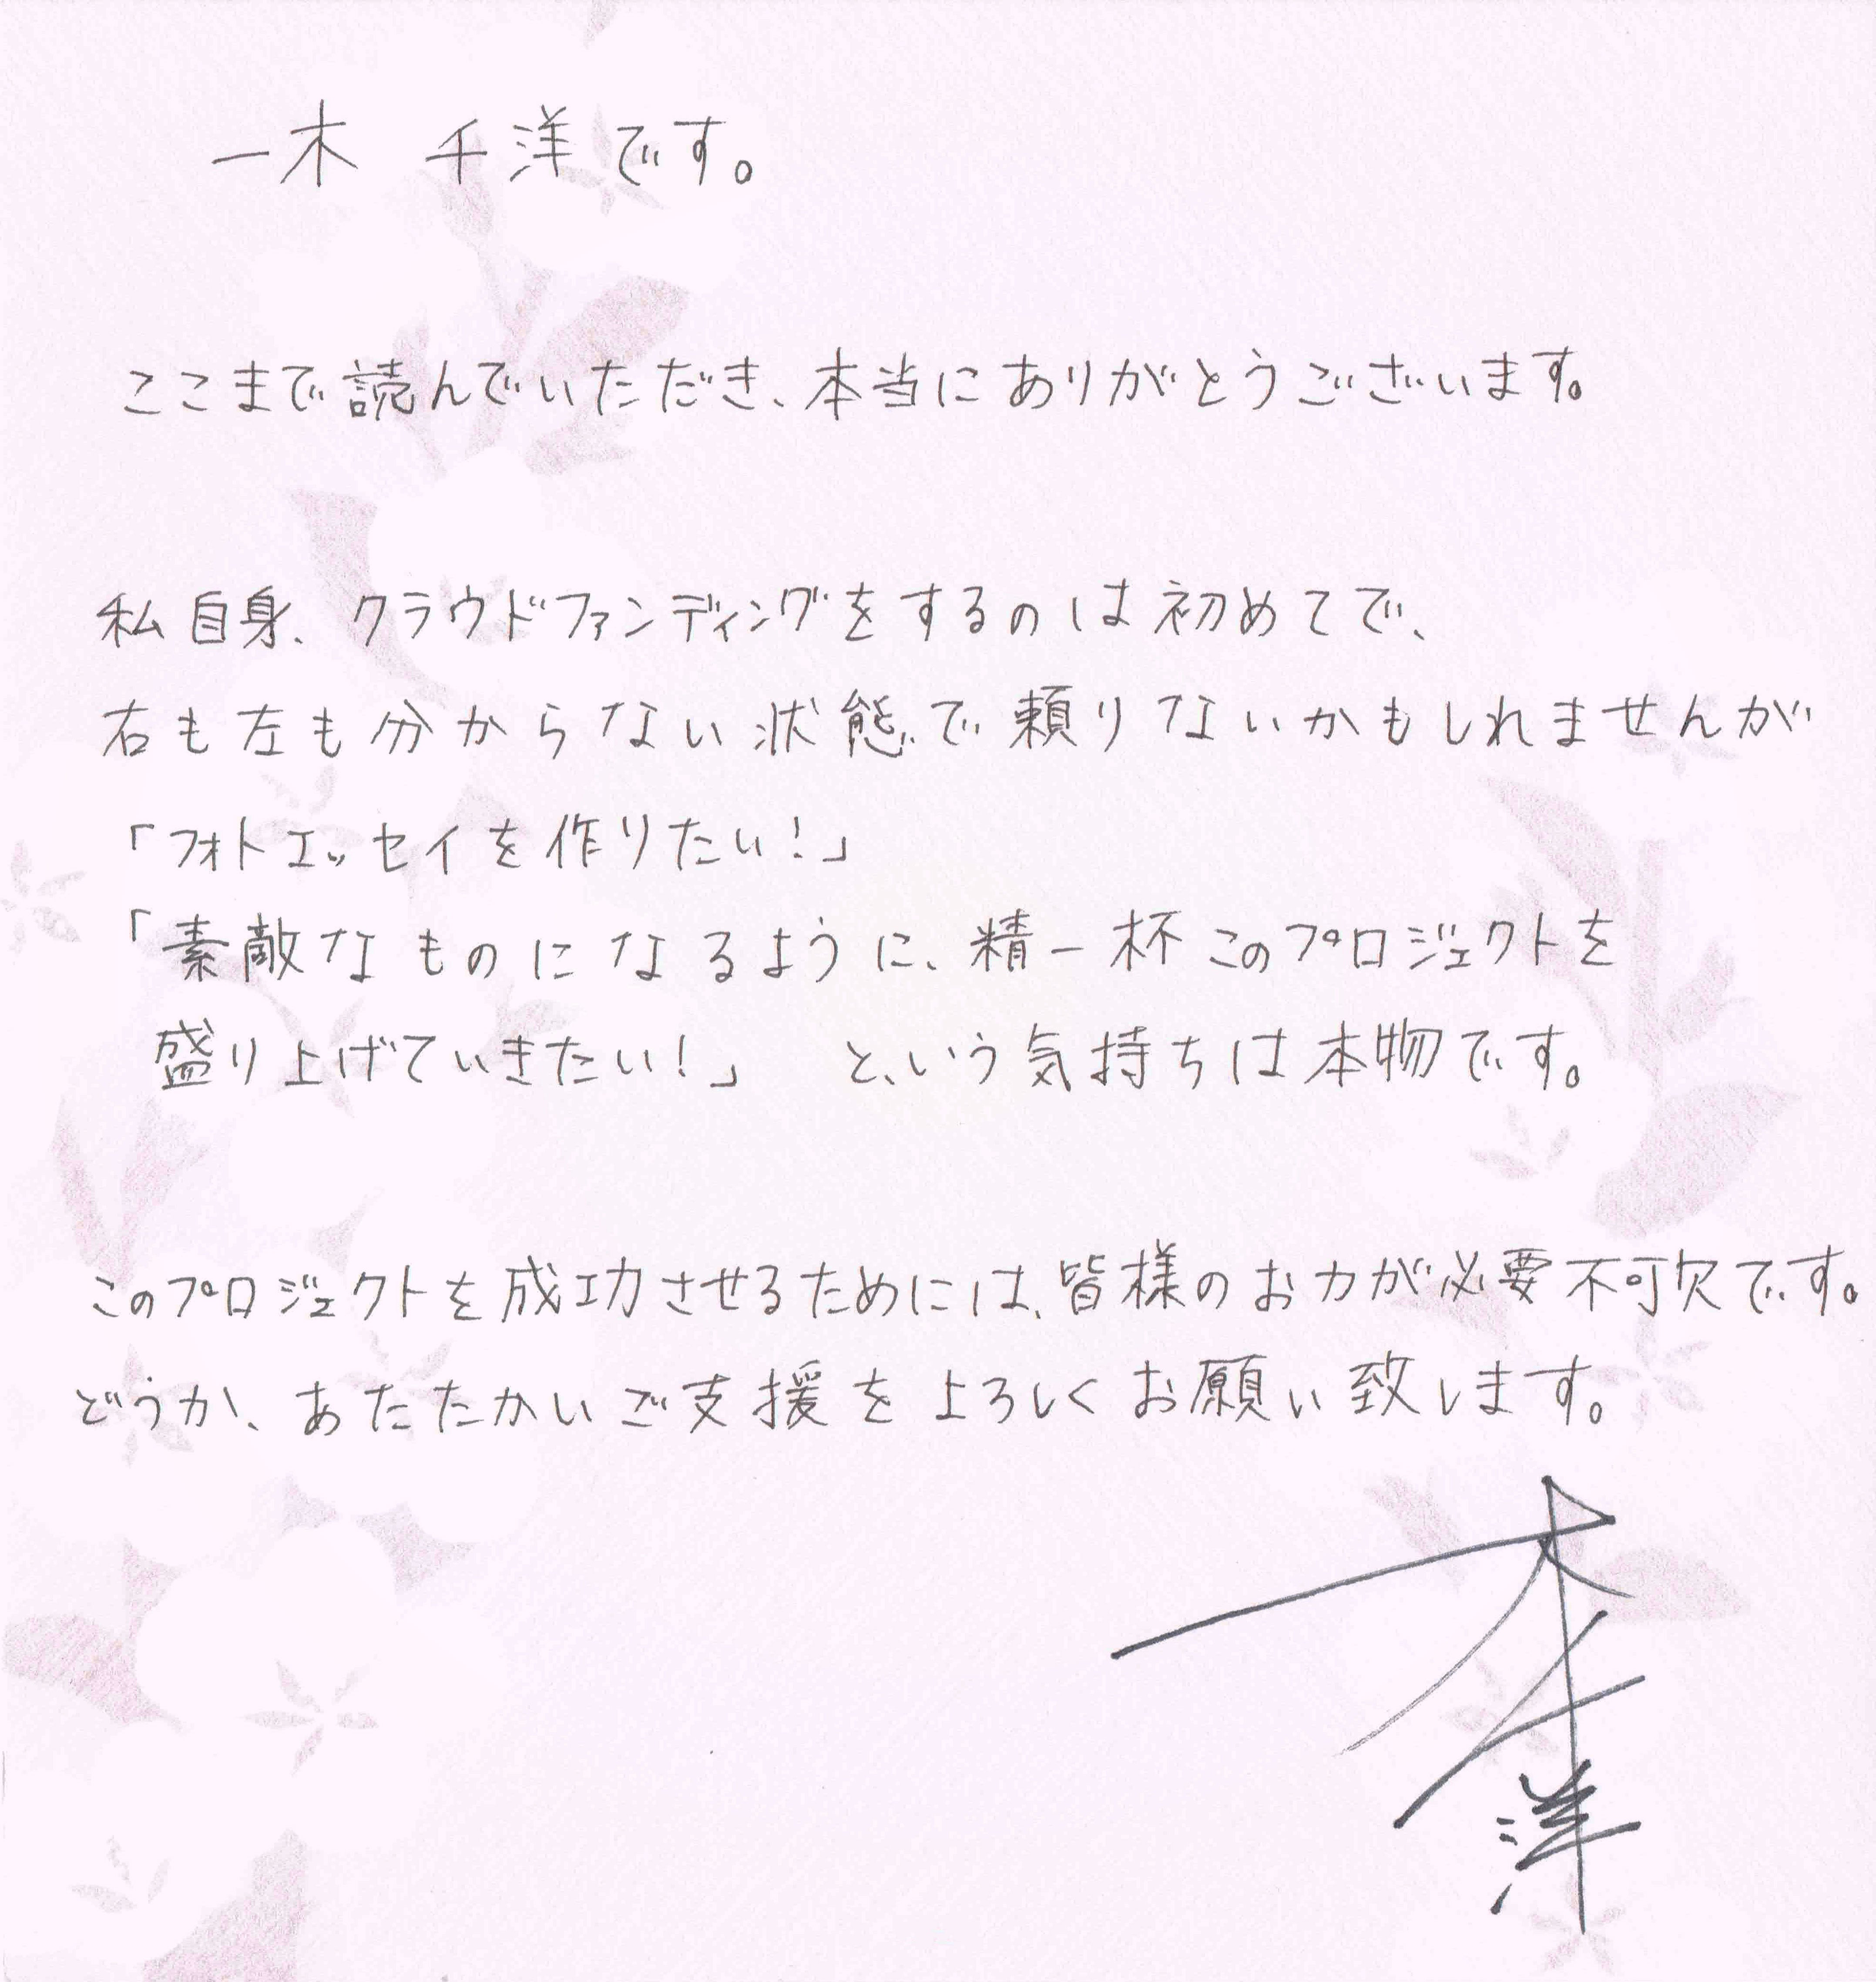 一木 千洋です。
ここまで読んでいただき、本当にありがとうございます。
私自身、クラウドファンディングをするのは初めてで、
右も左も分からない状態で頼りないかもしれませんが
「フォトエッセイを作りたい！」
「素敵なものになるように、精一杯このプロジェクトを
盛り上げていきたい！」 という気持ちは本物です。
このプロジェクトを成功させるためには、皆様のお力が必要不可欠です。
どうか、あたたかいご支援をよろしくお願い致します。
一木千洋